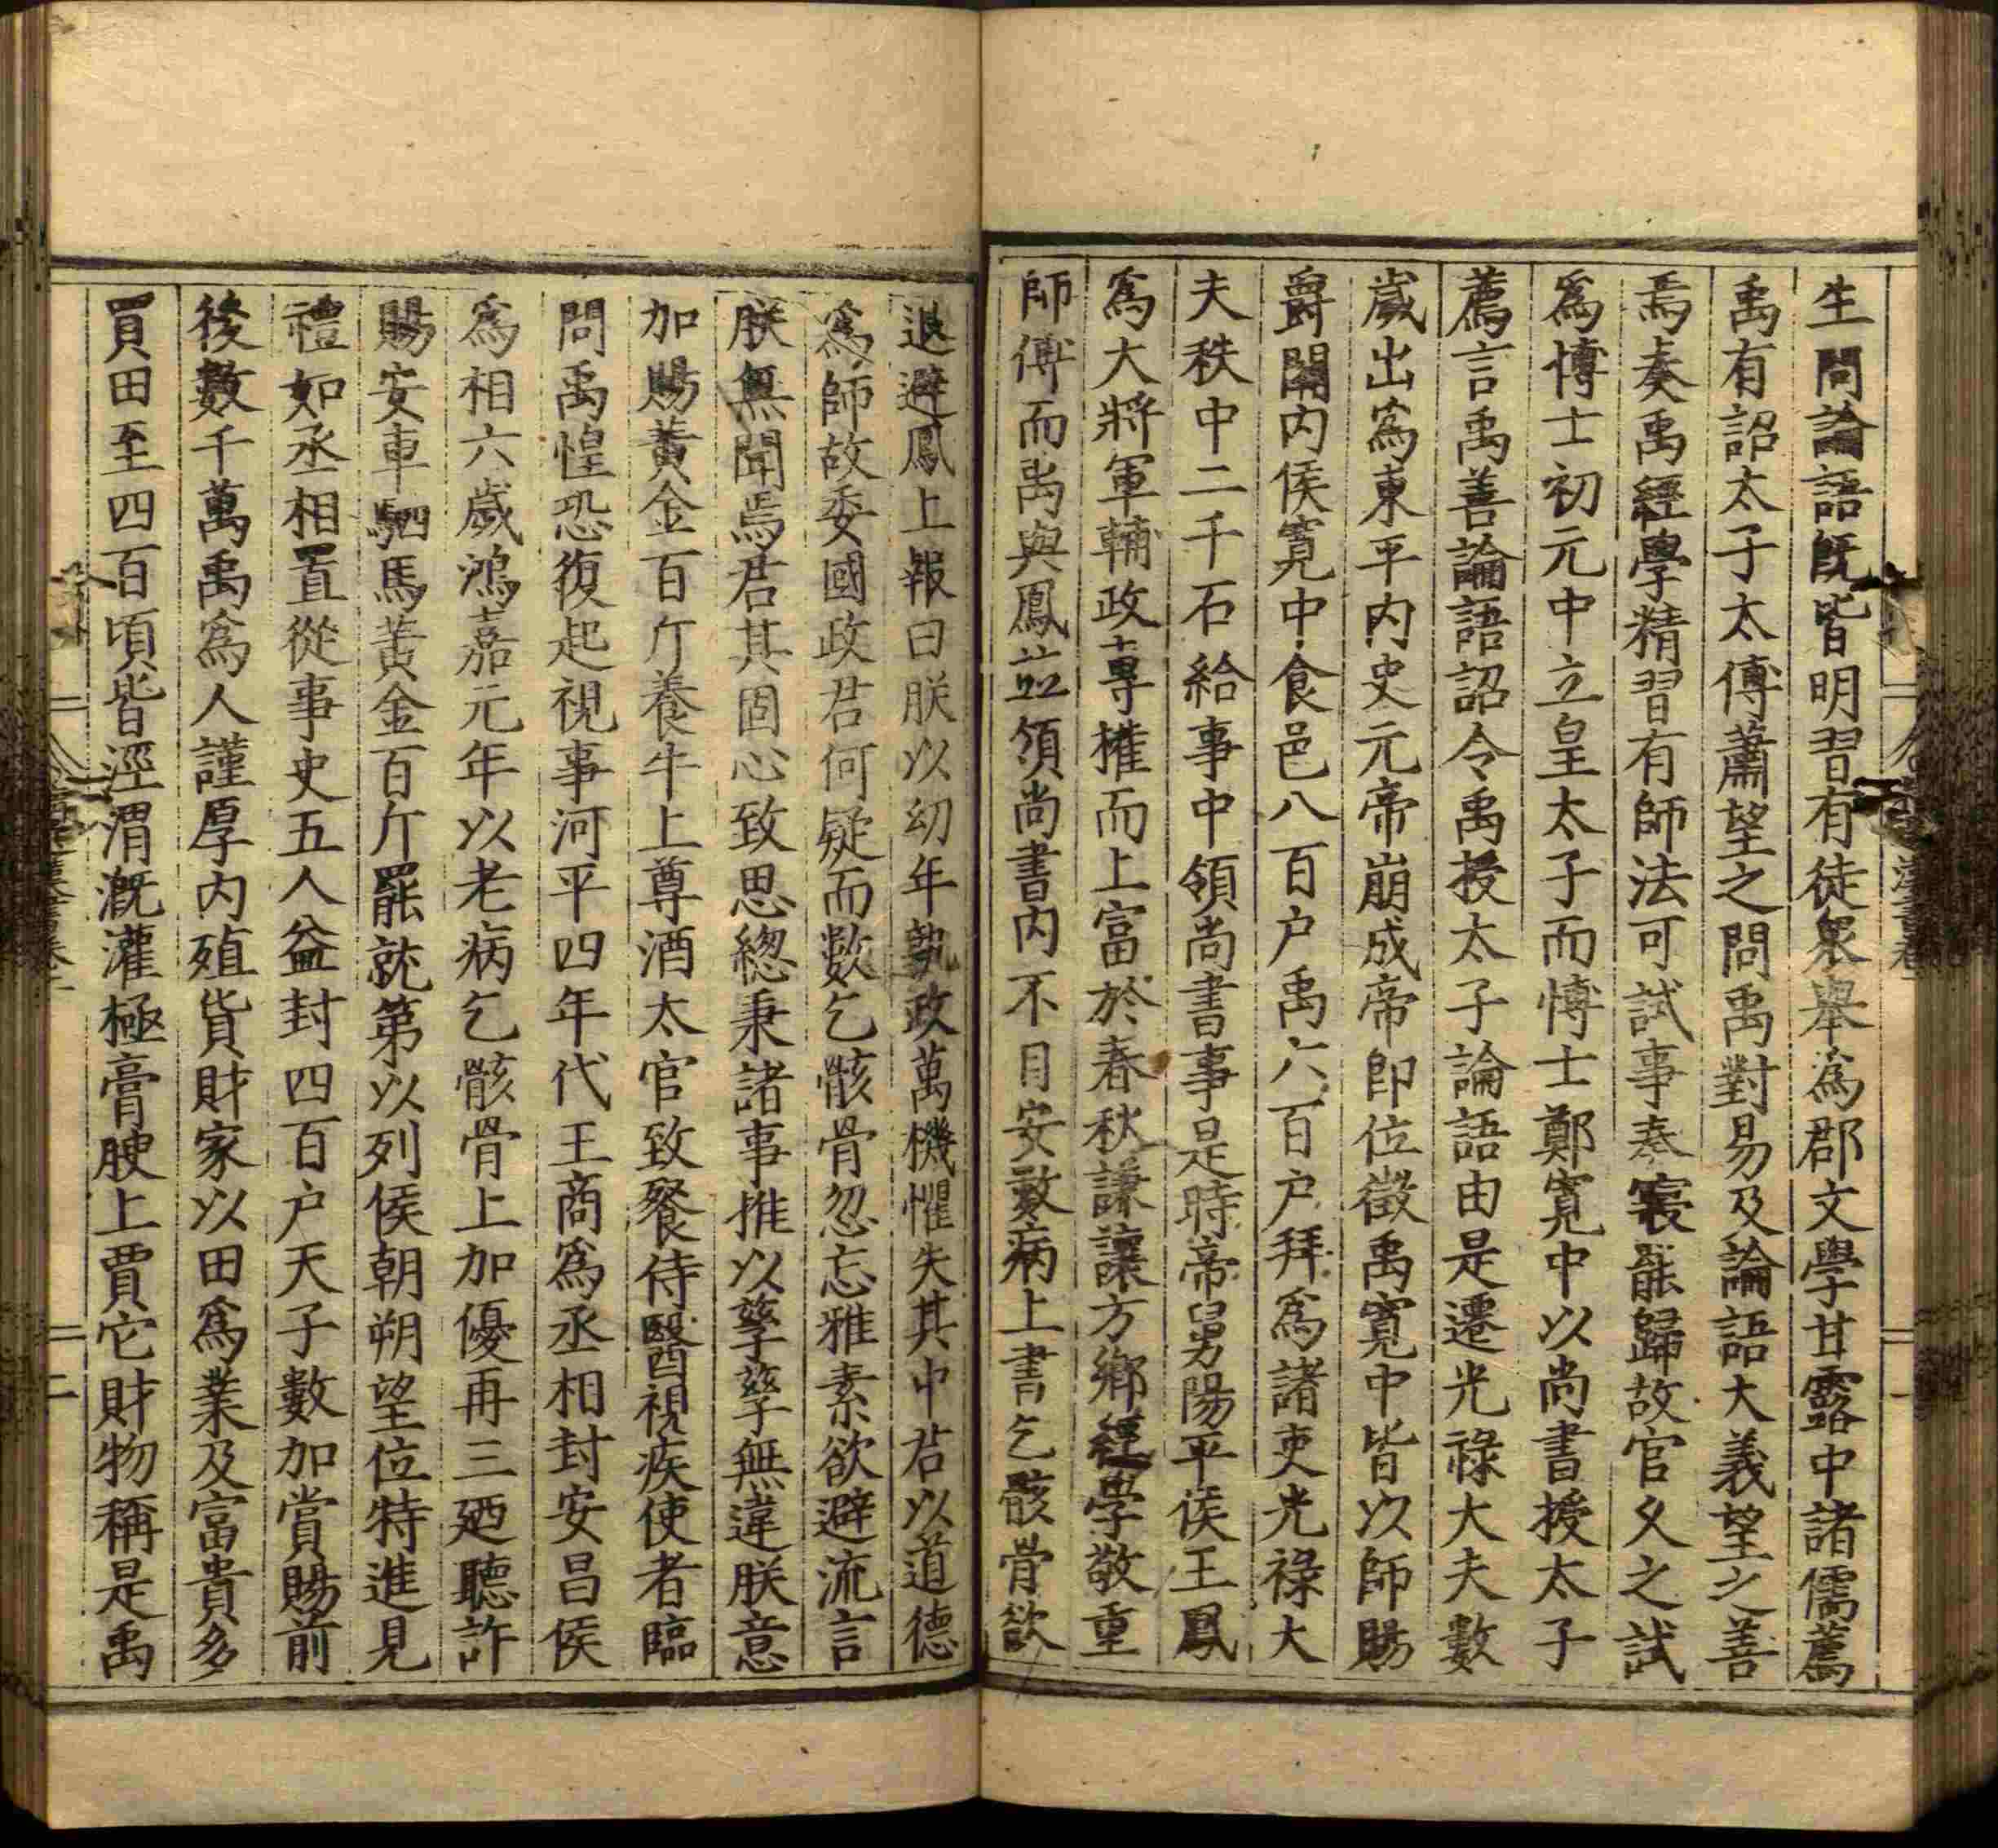 生問論語既皆明習有徒衆舉爲郡文學甘露中諸儒薦
禹有詔太子太傅蕭望之問禹對易及論語大義望之善
焉奏禹經學精習有師法可試事奏寑罷歸故官久之試
爲博士初元中立皇太子而博士鄭寬中以尚書授太子
薦言禹善論語詔令禹授太子論語由是遷光祿大夫數
歲出爲東平内史元帝崩成帝即位徵禹寬中皆以師賜
爵關内侯寬中食邑八百户禹六百户拜爲諸吏光祿大
夫秩中二千石給事中領尚書事是時帝舅陽平侯王鳳
爲大將軍輔政專權而上富於春秋謙讓方鄉經學敬重
師傅而禹與鳳並領尚書内不自安數病上書乞骸骨欲
退避鳳上報曰朕以幼年執政萬機懼失其中君以道德
爲師故委國政君何疑而數乞骸骨忽忘雅素欲避流言
朕無聞焉君其固心致思緫秉諸事推以孳孳無違朕意
加賜黄金百斤養牛上尊酒太官致餐侍醫視疾使者臨
問禹惶恐復起視事河平四年代王商爲丞相封安昌侯
爲相六歲鴻嘉元年以老病乞骸骨上加優再三廼聽許
賜安車駟馬黄金百斤罷就第以列侯朝朔望位特進見
禮如丞相置從事史五人益封四百户天子數加賞賜前
後數千萬禹爲人謹厚内殖貨財家以田爲業及富貴多
買田至四百頃皆涇渭漑灌極膏腴上賈它財物稱是禹